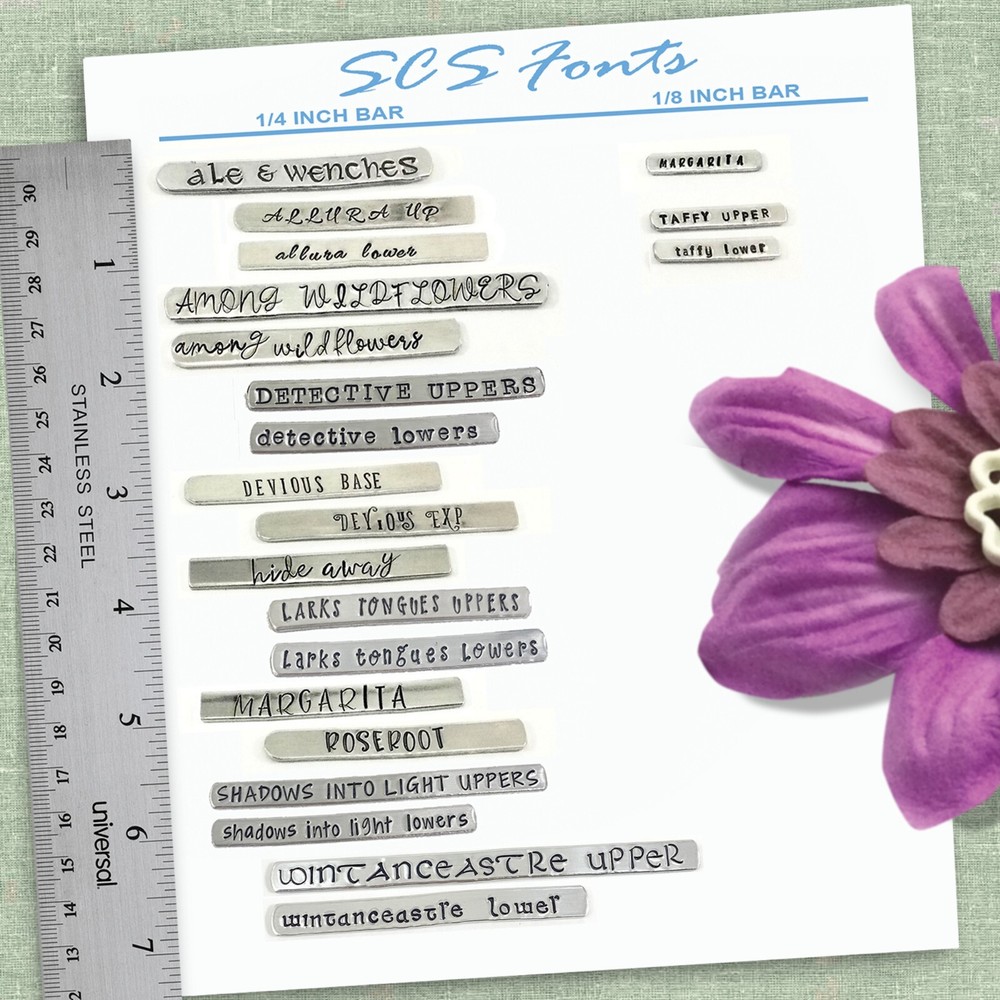 SCS Fonts
1/4 INCH BAR
1/8 INCH BAR
aLe & wenches
ALLURA UP
allura lower
AMONG WILDFLOWERS
among wildflowers
DETECTIVE UPPERS
detective lowers
DEVIOUS BASE
DEViOUS EXP
hide away
LARKS TONGUES UPPERS
Larks tongues Lowers
MARGARITA
ROSEROOT
SHADOWS INTO LIGHT UPPERS
shadows into light lowers
WINTANCEASTRe UPPeR
wintanceastre lower
MARGARITA
TAFFY UPPER
taffy lower
30
29
28
27
26
25
24
23
22
21
20
19
18
17
16
15
14
13
2
1
2
3
4
5
6
7
STAINLESS STEEL
universal.